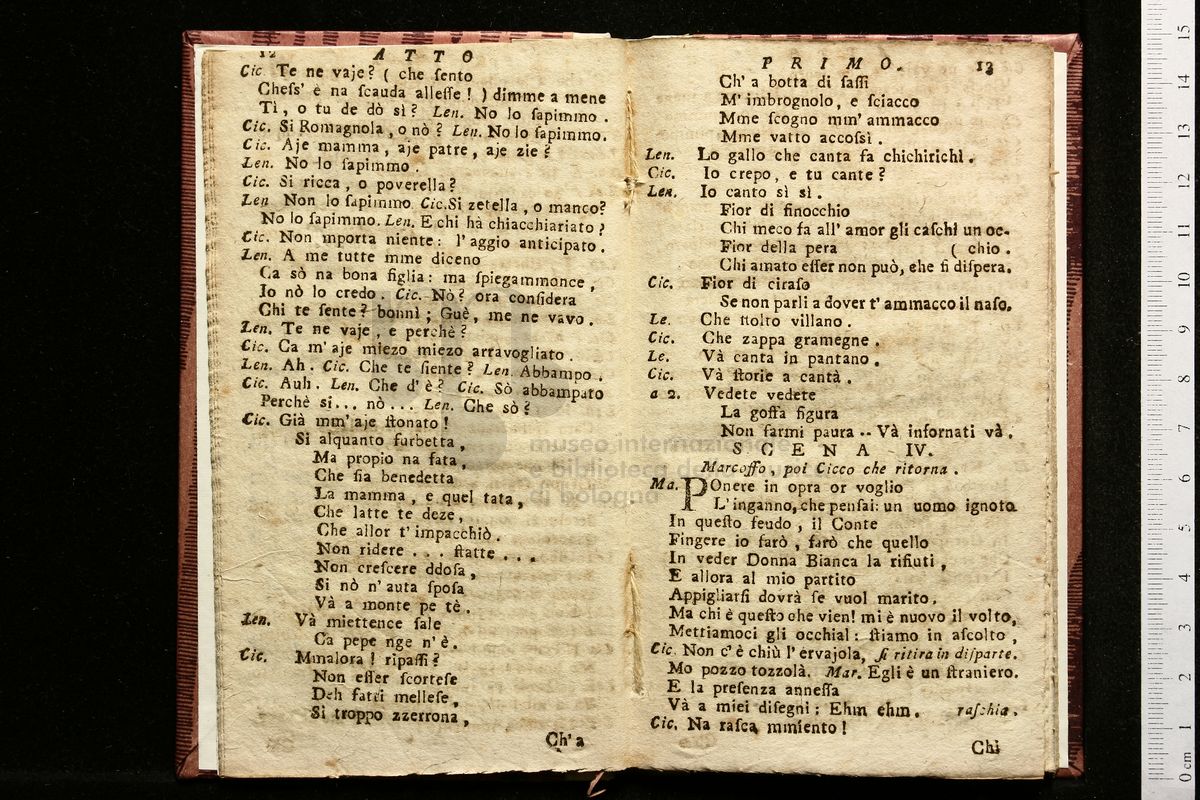 12 ATTO
Cic. Te ne vaje? ( che ſento
Cheſs' è na ſcauda alleſſe! ) dimme a mene
Tì, o tu de dò sì? Len. No lo ſapimmo.
Cic. Si Romagnola, o nò? Len. No lo ſapimmo.
Cic. Aje mamma, aje patre, aje zie?
Len. No lo ſapimmo.
Cic. Si ricca, o poverella?
Len Non lo ſapimmo Cic. Si zetella, o manco?
No lo ſapimmo. Len. E chi hà chiacchiariato?
Cic. Non mporta niente: l'aggio anticipato.
Len. A me tutte mme diceno
Ca sò na bona figlia: ma ſpiegammonce,
Io nò lo credo. Cic. Nò? ora conſidera
Chi te ſente? bonnì; Guè, me ne vavo.
Len. Te ne vaje, e perchè?
Cic. Ca m'aje miezo miezo arravogliato.
Len. Ah. Cic. Che te ſiente? Len. Abbampo.
Cic. Auh. Len. Che d'è? Cic. Sò abbampato
Perchè si... nò... Len. Che sò?
Cic. Già mm'aje ſtonato!
Si alquanto furbetta,
Ma propio na fata,
Che ſia benedetta
La mamma, e quel tata,
Che latte te deze,
Che allor t'impacchiò.
Non ridere . . . ſtatte . . .
Non creſcere ddoſa,
Si nò n'auta ſpoſa
Và a monte pe tè.
Len. Và miettence ſale
Ca pepe nge n'è.
Cic. Mmalora! ripaſſi?
Non eſſer ſcorteſe
Deh fatti melleſe,
Si troppo zzerrona,
Ch'a
PRIMO. 13
Ch'a botta di ſaſſi
M'imbrognolo, e ſciacco
Mme ſcogno mm'ammacco
Mme vatto accoſsì.
Len. Lo gallo che canta fa chichirichì.
Cic. Io crepo, e tu cante?
Len. Io canto sì sì.
Fior di finocchio
Chi meco fa all'amor gli caſchi un oc-
Fior della pera ( chio.
Chi amato eſſer non può, che ſi diſpera.
Cic. Fior di ciraſo
Se non parli a dover t'ammacco il naſo.
Le. Che ſtolto villano.
Cic. Che zappa gramegne.
Le. Và canta in pantano.
Cic. Và ſtorie a cantà.
a 2. Vedete vedete
La goffa figura
Non farmi paura .. Và infornati và.
SCENA IV.
Marcoffo, poi Cicco che ritorna.
Ma. POnere in opra or voglio
L'inganno, che penſai: un uomo ignoto
In queſto feudo, il Conte
Fingere io farò, farò che quello
In veder Donna Bianca la rifiuti,
E allora al mio partito
Appigliarſi dovrà ſe vuol marito.
Ma chi è queſto che vien! mi è nuovo il volto,
Mettiamoci gli occhial: ſtiamo in aſcolto,
Cic. Non c'è chiù l'ervajola, ſi ritira in diſparte.
Mo pozzo tozzolà. Mar. Egli è un ſtraniero.
E la preſenza anneſſa
Và a miei diſegni: Ehm ehm. raſchia.
Cic. Na raſca mmiento!
Chi
museo internazionale
e biblioteca della musica
di bologna